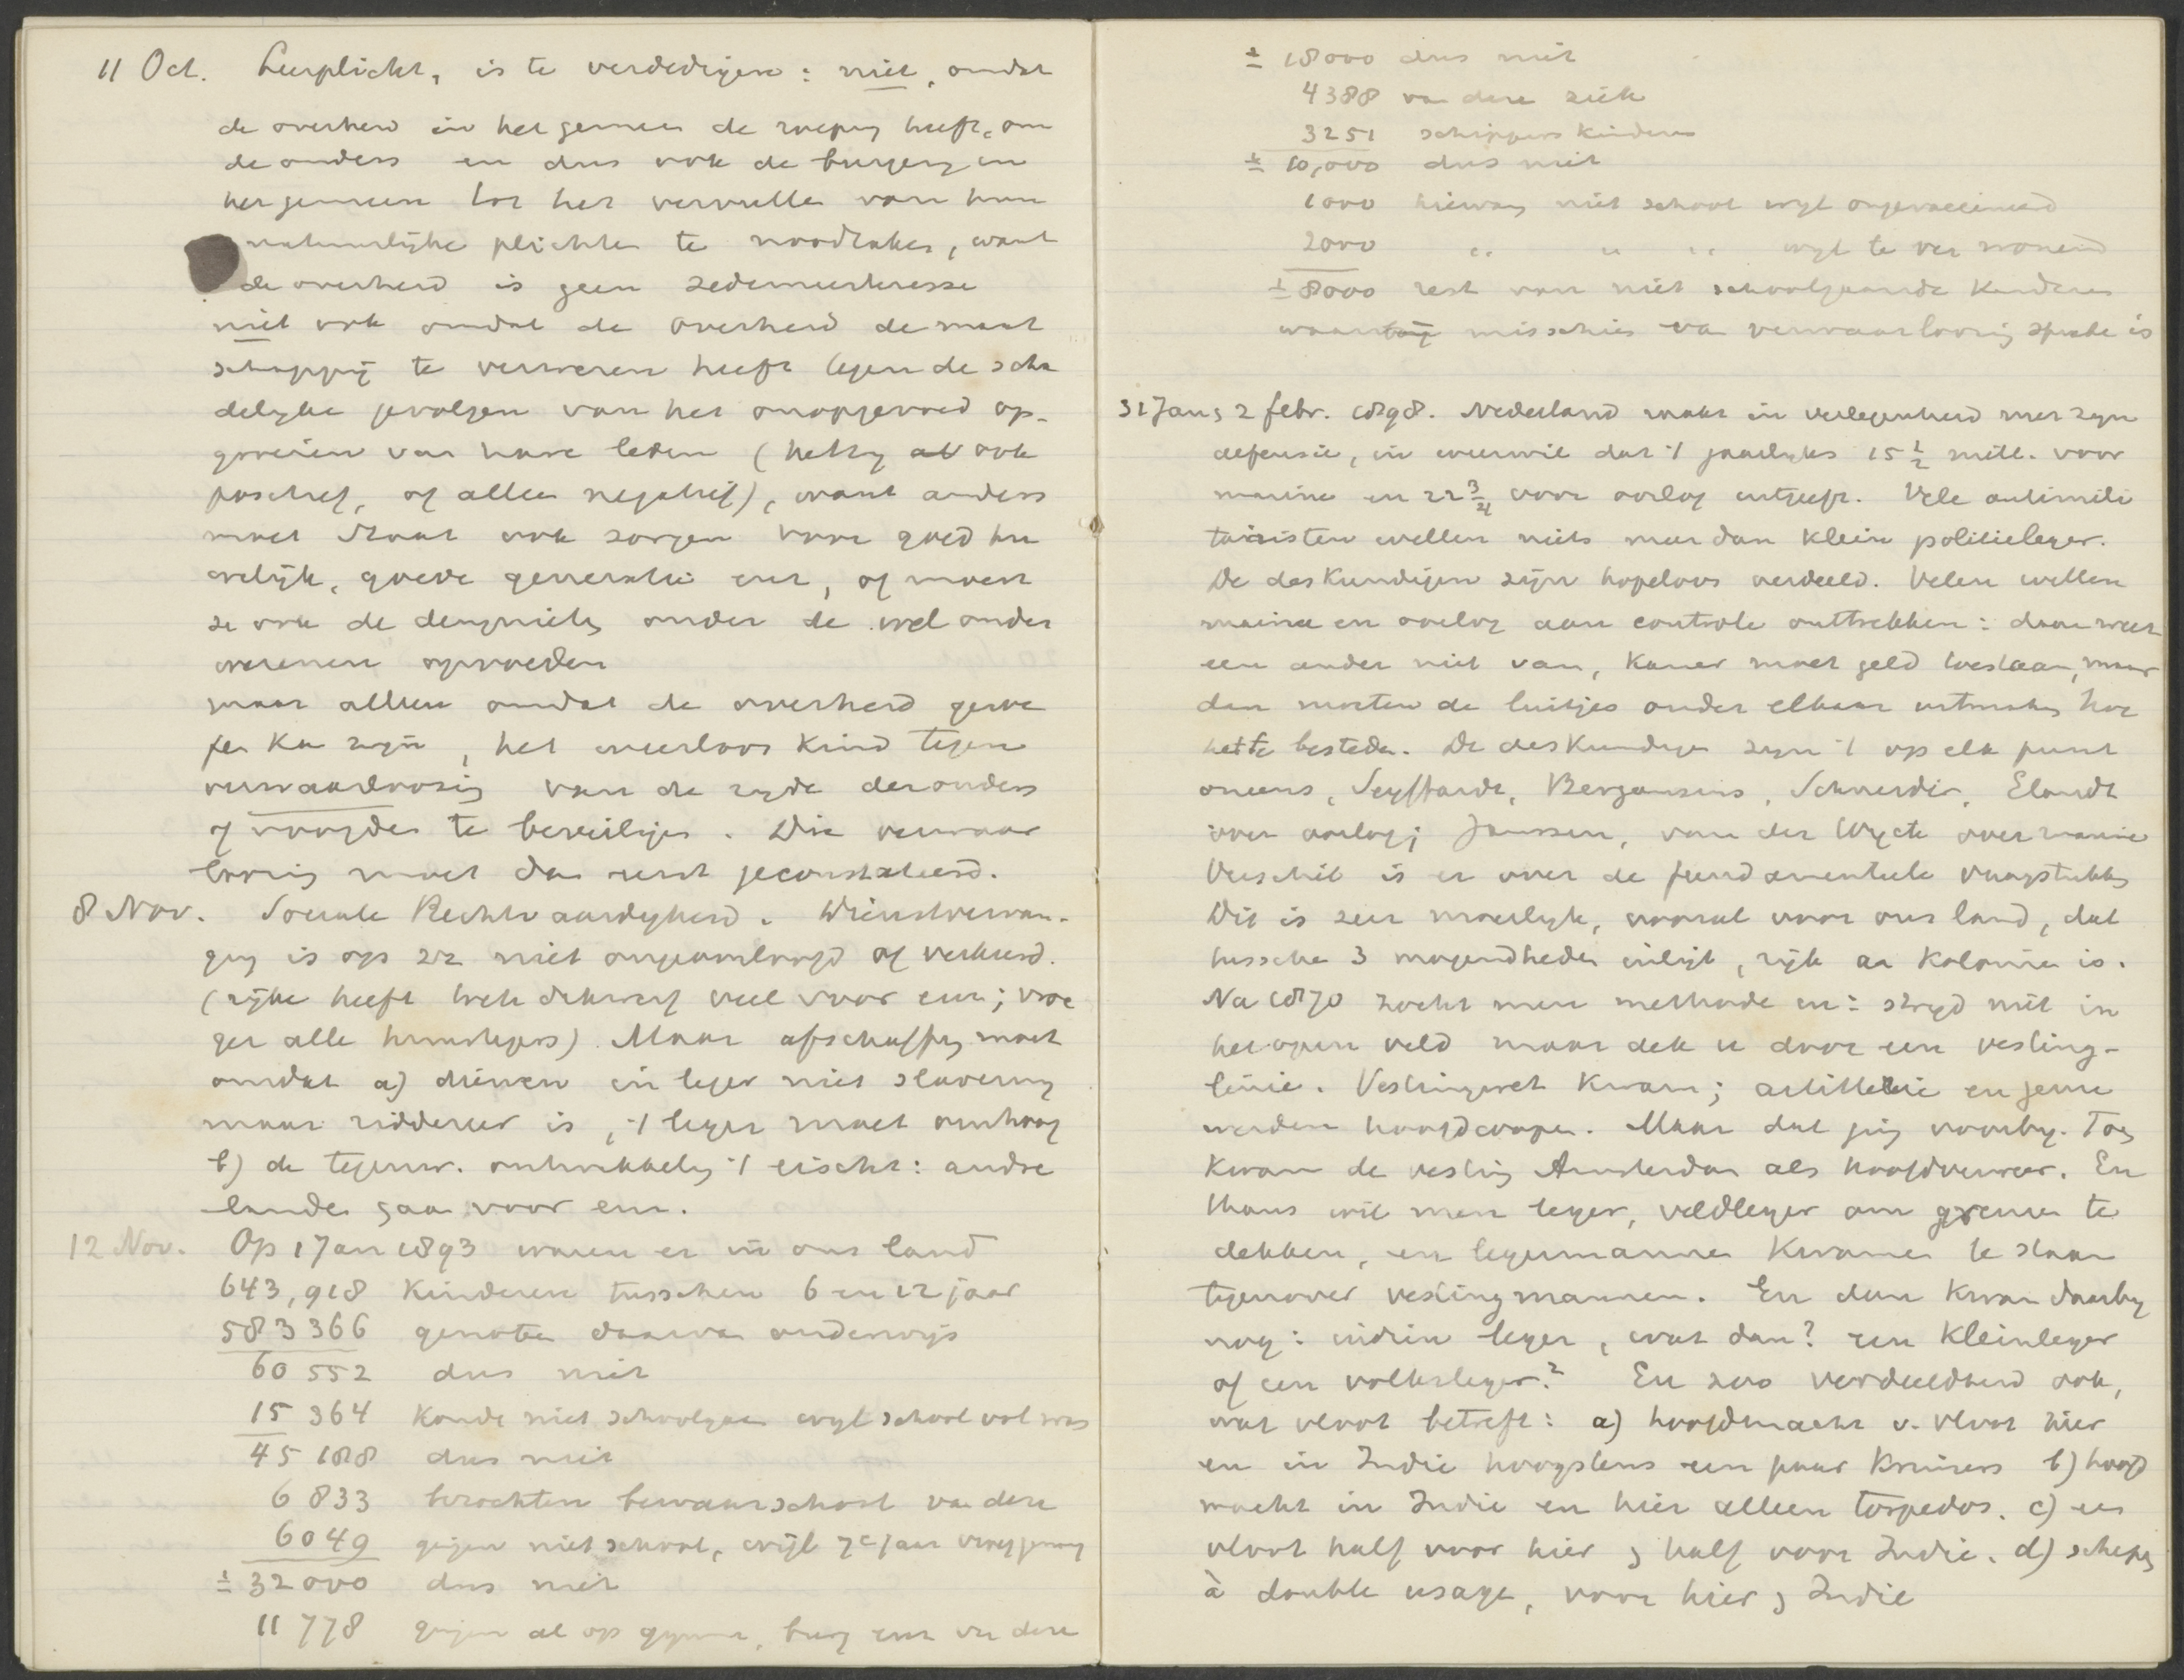 11 Oct. Leerplicht, is te verdedigen: niet, omdat
de overheid in het gemeen de roeping heeft, om
de ouders en dus ook de burgerij in
het gemeen tot het vervullen van hun
natuurlijke plichten te noodzaken, want
de overheid is geen zedemeesteresse
niet ook omdat de overheid de maat
schappij te verweren heeft tegen de scha
delijke gevolgen van het onopgevoed op-
groeien van hare leden (hetzij ook
positief, of alleen negatief), want anders
moet Staat ook zorgen voor goed hu
welijk, goede generatie enz, of moest
ze ook de deugniets onder de wel onder
wezenen opvoeden
maar alleen omdat de overheid geroe
pen kan zijn, het weerloos kind tegen
verwaarloozing van de zijde der ouders
of voogden te beveiligen. Die verwaar
loozing moet dan eerst geconstateerd.
8 Nov. Sociale Rechtvaardigheid. Dienstvervan-
ging is op zich niet ongeoorloofd of verkeerd.
(rijke heeft toch dikwerf veel voor enz; vroe
ger alle huurlegers). Maar afschaffing moet
omdat a) dienen in leger niet slavernij
maar ridder eer is, 't leger moet omhoog
b) de tegenw. ontwikkeling 't eischt: andre
landen gaan voor enz.
12 Nov. Op 1 Jan 1893 waren er in ons land
643,918 Kinderen tusschen 6 en 12 jaar
583 366 genoten daarvan onderwijs
60 552 dus niet
15 364 Konde niet schoolgaan wijl school vol was
45 188 dus niet
6 833 bezochten bewaarschool van deze
6049 gingen niet school, wijl 7e jaar
± 32000 dus niet
11 778 gingen al op gymn., burg enz van deze
± 18000 dus niet
4388 van deze ziek
3251 schippers kinderen
± 10,000 dus niet
1000 hiervan niet school wijl ongevaccineerd
2000 " " " wijl te ver wonend
± 8000 rest van niet schoolgaande kinderen
waarbij misschien van verwaarloozing sprake is
31 Jan; 2 febr. 1898. Nederland raakt in verlegenheid met zijn
defensie, in weerwil dat 't jaarlijks 15 1/2 mill. voor
marine en 22 3/4 voor oorlog uitgeeft. Vele antimili
taristen willen niets meer dan klein politieleger.
De deskundigen zijn hopeloos verdeeld. Velen willen
marine en oorlog aan controle onttrekken: daar weet
een ander niet van, kamer moet geld toestaan, maar
dan moeten de luitjes onder elkaar uitmaken hoe
het te besteden. De deskundigen zijn 't op elk punt
oneens, Seyffardt, Bergansius, Schneider, Elandt
over oorlog; Janssen, van der Wyck over marine
Verschil is er over de fundamenteele vraagstukken
Dit is zeer moeilijk, vooral voor ons land, dat
tusschen 3 mogendheden inligt, rijk aan Kolonien is.
Na 1870 zocht men methode en: strijd niet in
het open veld maar dek u door een vesting-
linie. Vestingwet kwam; artillerie en genie
werden hoofdwapen. Maar dat ging voorbij. Toen
kwam de vesting Amsterdam als hoofdverweer. En
thans wil men leger, veldleger om grenzen te
dekken, en legermannen kwamen te staan
tegenover vestingmannen. En dan kwam daarbij
nog: indien leger, wat dan? een Kleinleger
of een volksleger? En zoo verdeeldheid ook,
wat vloot betreft: a) hoofdmacht v. vloot hier
en in Indie hoogstens een paar Kruisers b) hoofd
macht in Indie en hier alleen torpedos. c) een
vloot half voor hier ; half voor Indie. d) schepen
à double usage, voor hier ; Indie